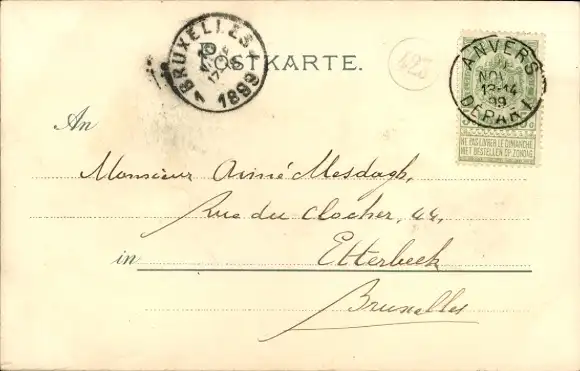 BRUXELLES 1
1899
POSTKARTE.
425
ANVERS
NOV
13-14
99
DÉPART
NE PAS LIVRER LE DIMANCHE
NIET BESTELLEN OP ZONDAG
An
Monsieur Aimé Mesdagh,
Rue du Clocher, 44,
in Etterbeek
Bruxelles